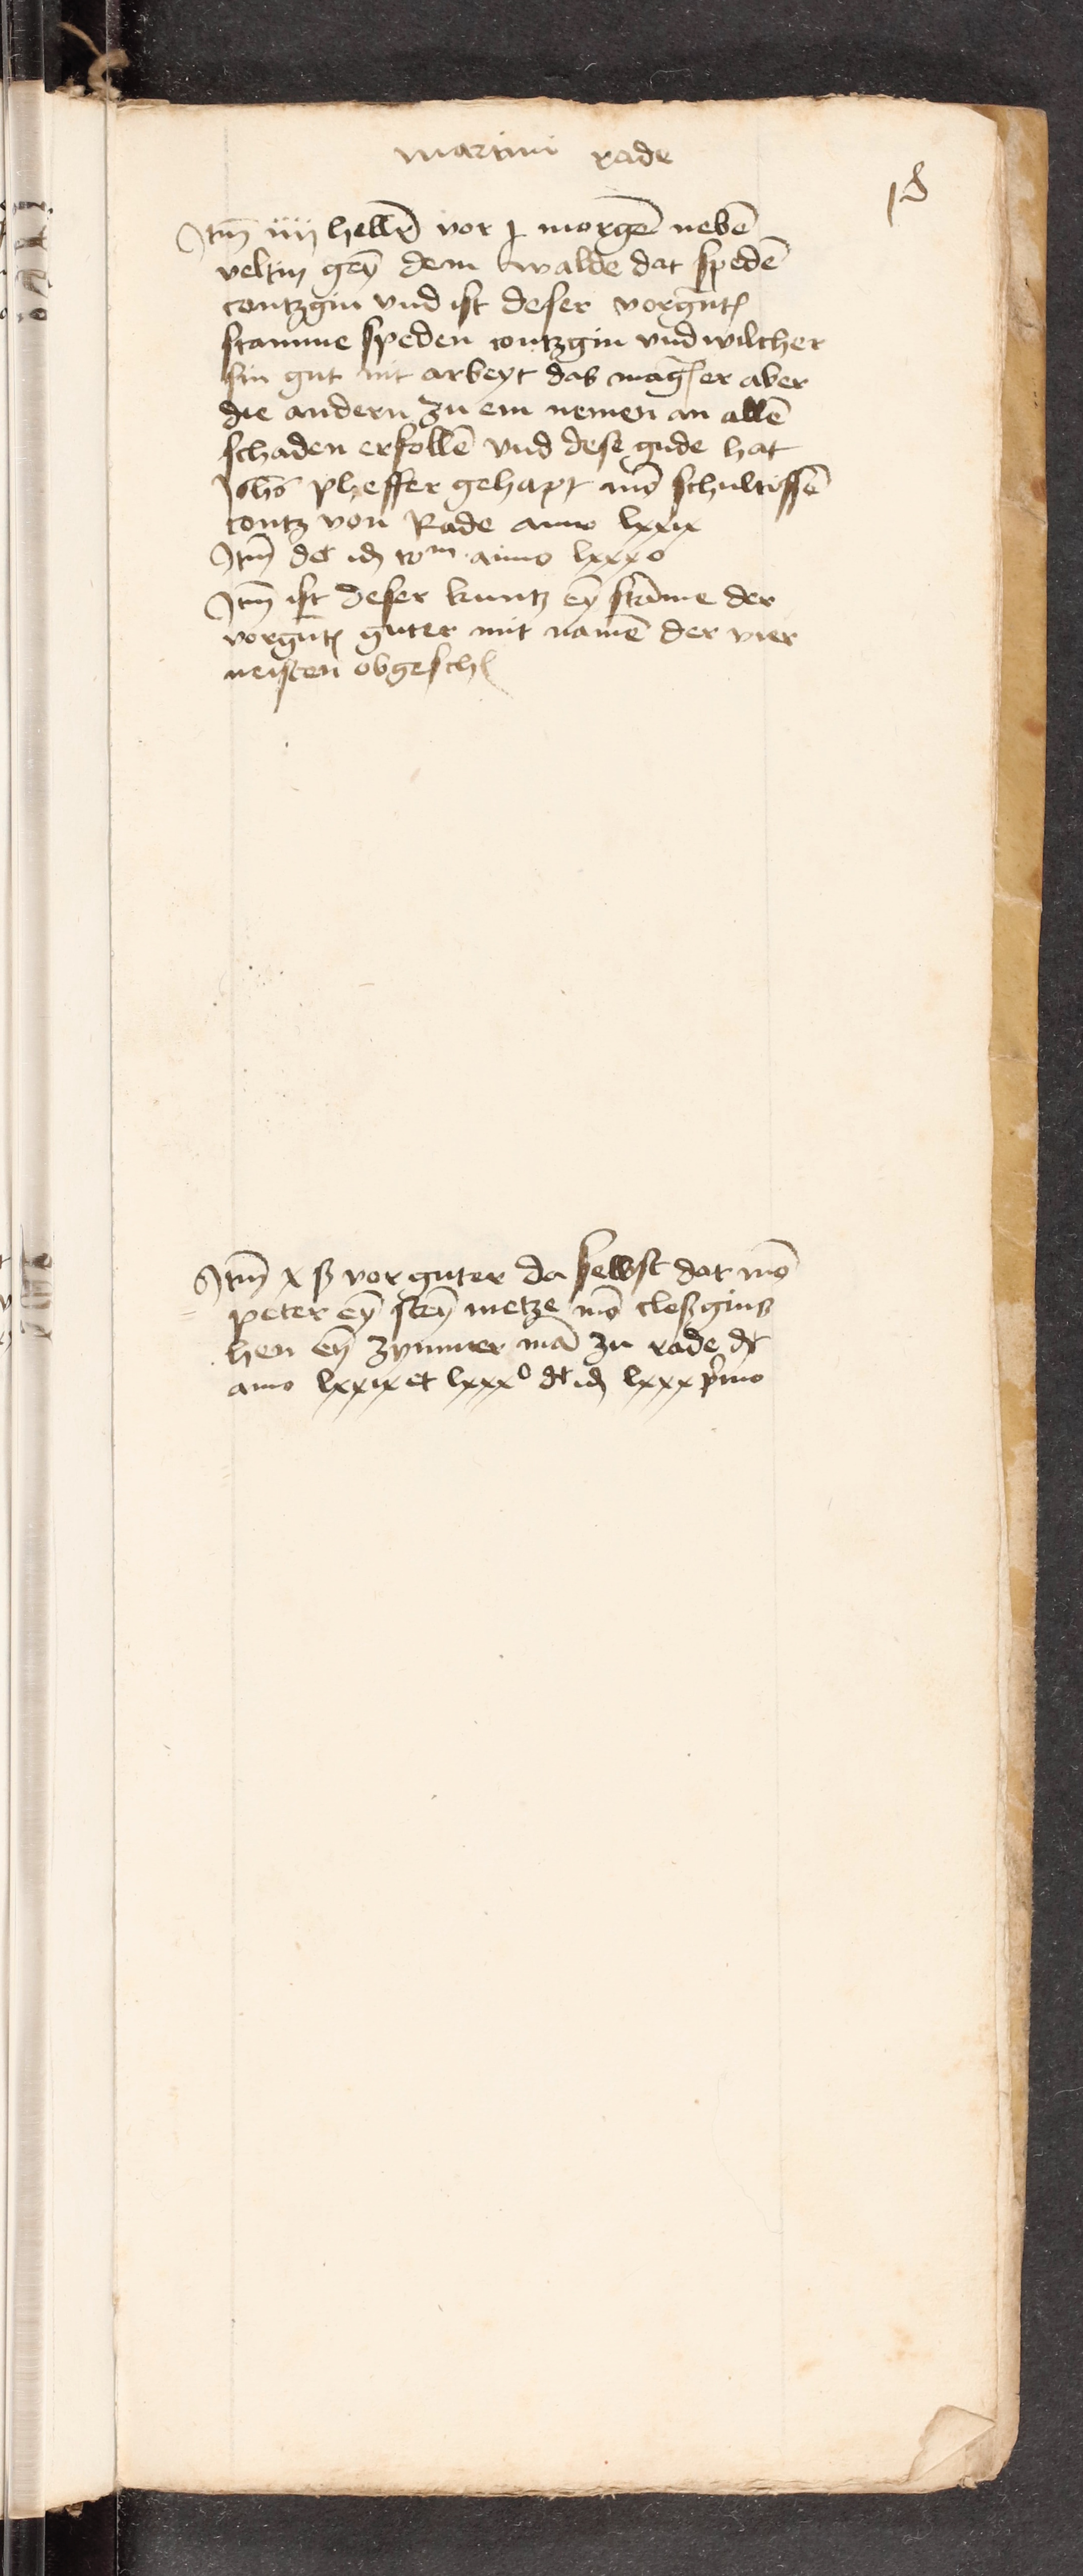 martini rade
18
Itm̄ iiij hellr̄ vor j morgē nebē
veltin geȳ dem walde dat spedē
contzgin vnd ist deser vorgnt̄
stamme speden contzgin vnd wilcher
sin gut nit arbeyt das mag er aber
die andern zu em nemen an allē
schaden erfollē vnd dese gude hat
Johēs pheffer gehapt mō schultissē
contz von Rade anno lxxix
Itm̄ dt id̄ anno lxxxo
Itm̄ ist deser kuntz eȳ stāme der
vorgnt̄ guter mit namē der vier
neisten obgesch
Itm̄ x ß vor guter da selbst dat mō
peter eȳ steȳ metze mō cleßgins
hen eȳ zymmer mā zu rade dt
anno lxxix et lxxxo dt id̄ lxxx primo